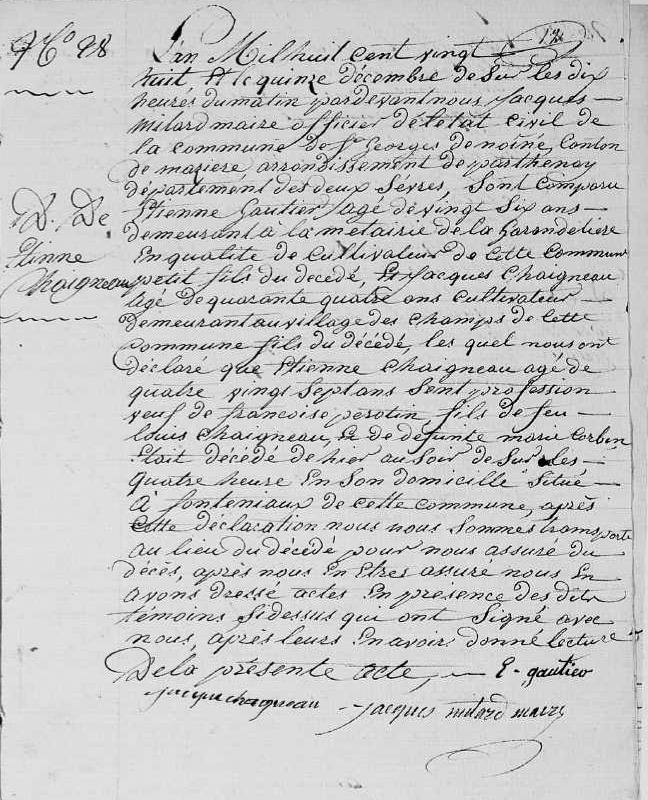 N.o 28
12
L'an Mil huil cent vingt
huit Et le quinze décembre de Sur les dix
heures du matin pardevant nous Jacques
Milard maire officier de l'état civil de
la commune de St Georges de noiné, Canton
de maziere arrondissement de parthenay
département des deux Sèvres, Sont Comparu
Etienne Gautier agé de vingt Six ans
demeurant a la metairie de la Garondeliere
En qualite de Cultivateur de Cette Commune
D. De
Etinne
Chaigneau
petit fils du décedé, Et Jacques Chaigneau
agé de quarante quatre ans cultivateur
demeurant au village des Champs de Cette
Commune fils du décédé, les quel nous ont
déclaré que Etienne Chaigneau agé de
quatre vingt Sept ans Sent profession
veuf de francoise perotin, fils de feu
louis Chaigneau, Et de défunte marie Corbin
Etait décédé de hier au Soir de Sur les
quatre heure En Son domicille Situé
A fonteniaux de cette commune, après
Cette déclacation nous nous Sommes transporté
au lieu du décédé pour nous assure du
décès, après nous En Etres assuré nous En
avons dressé actes En presence des dits
témoins Sidessus qui ont Signé avec
nous, après leurs En avoir donné lecture
De la présente acte, E- gautier
jacque chaigneau jacques milard maire